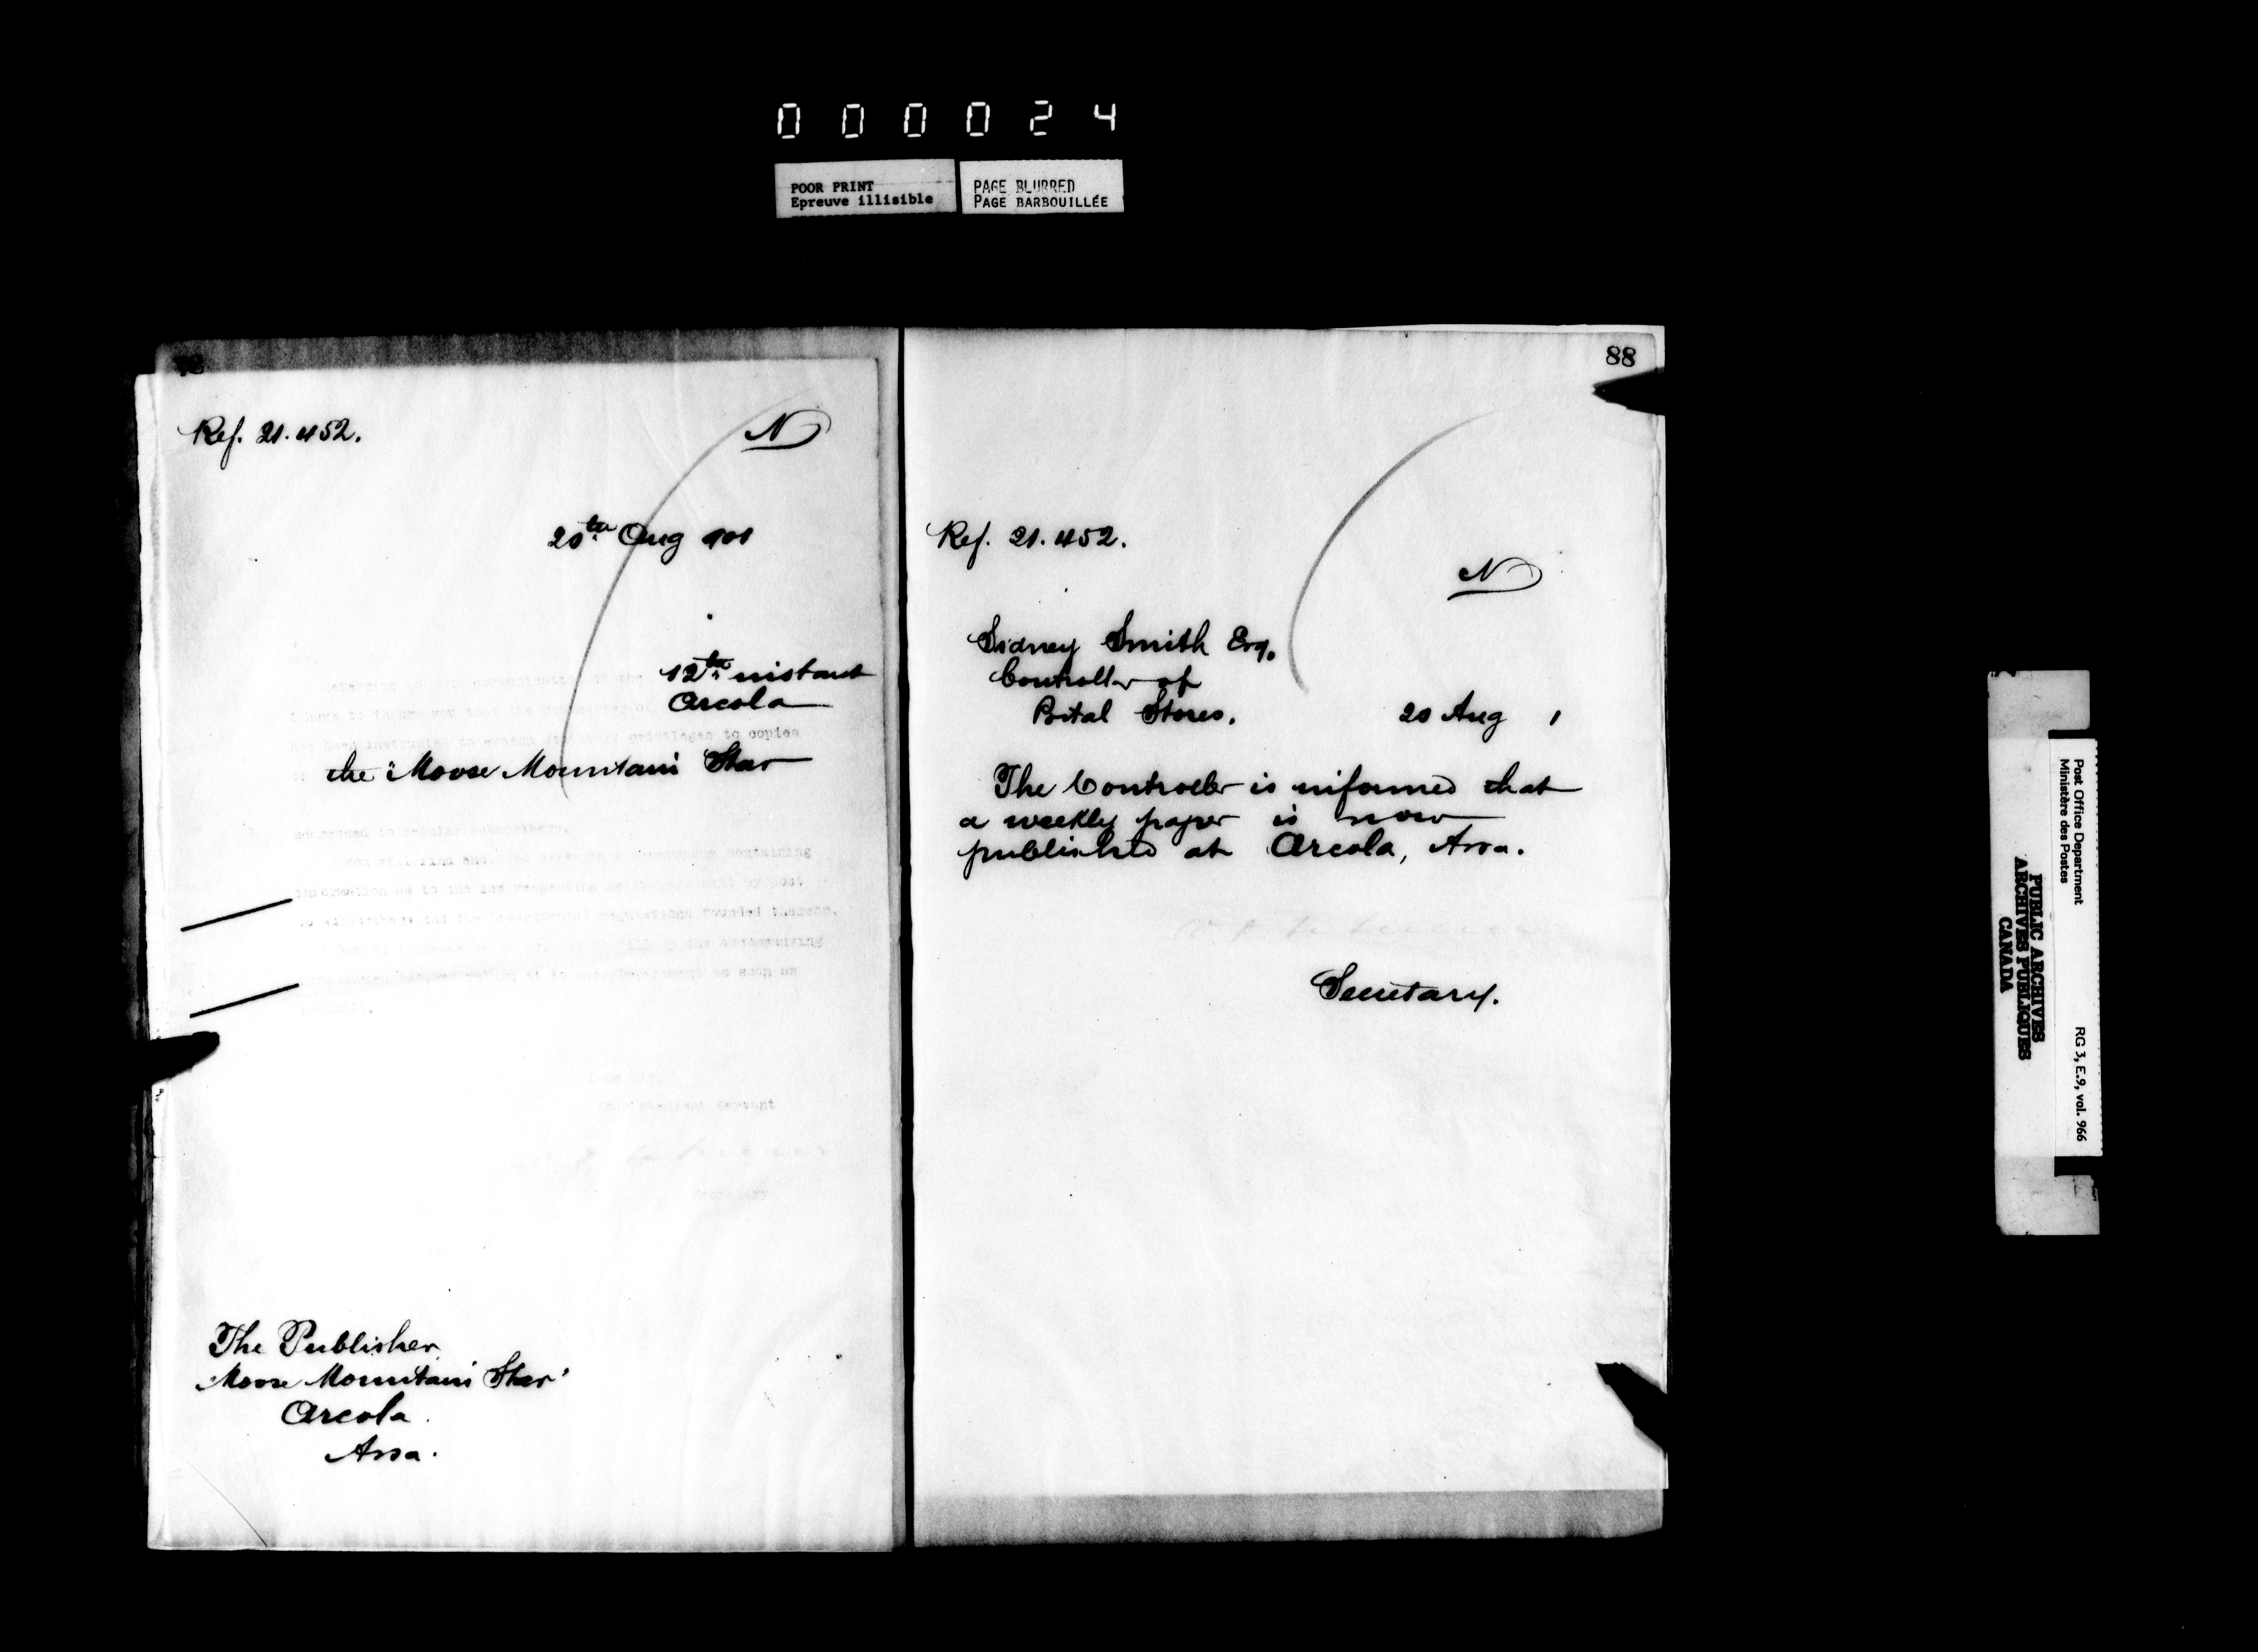 000024
POOR PRINT
Epreuve illisible
PAGE BLURRED
PAGE BARBOUILLÉE
Ref. 21.452.
N
20th Aug 901
12th instant
Arcola
I have to inform you that the
has been instructed to extend privileges to copies
the "Moose Mountain Star
addressed to regular subscribers.
You will find enclosed containing
information as to the law respecting by post
and the Departmental regulations founded thereon.
the accompanying
Department as soon as
Servant
Secretary
The Publisher
"Moose Mountain Star"
Arcola.
Assa.
88
Ref. 21.452.
N
Sidney Smith Esq.
Controller of
Postal Stores.
20 Aug 1
The Controller is informed that
a weekly paper is now
published at Arcola, Assa.
Secretary.
Post Office Department
Ministère des Postes
RG 3, E.9, vol. 966
PUBLIC ARCHIVES
ARCHIVES PUBLIQUES
CANADA